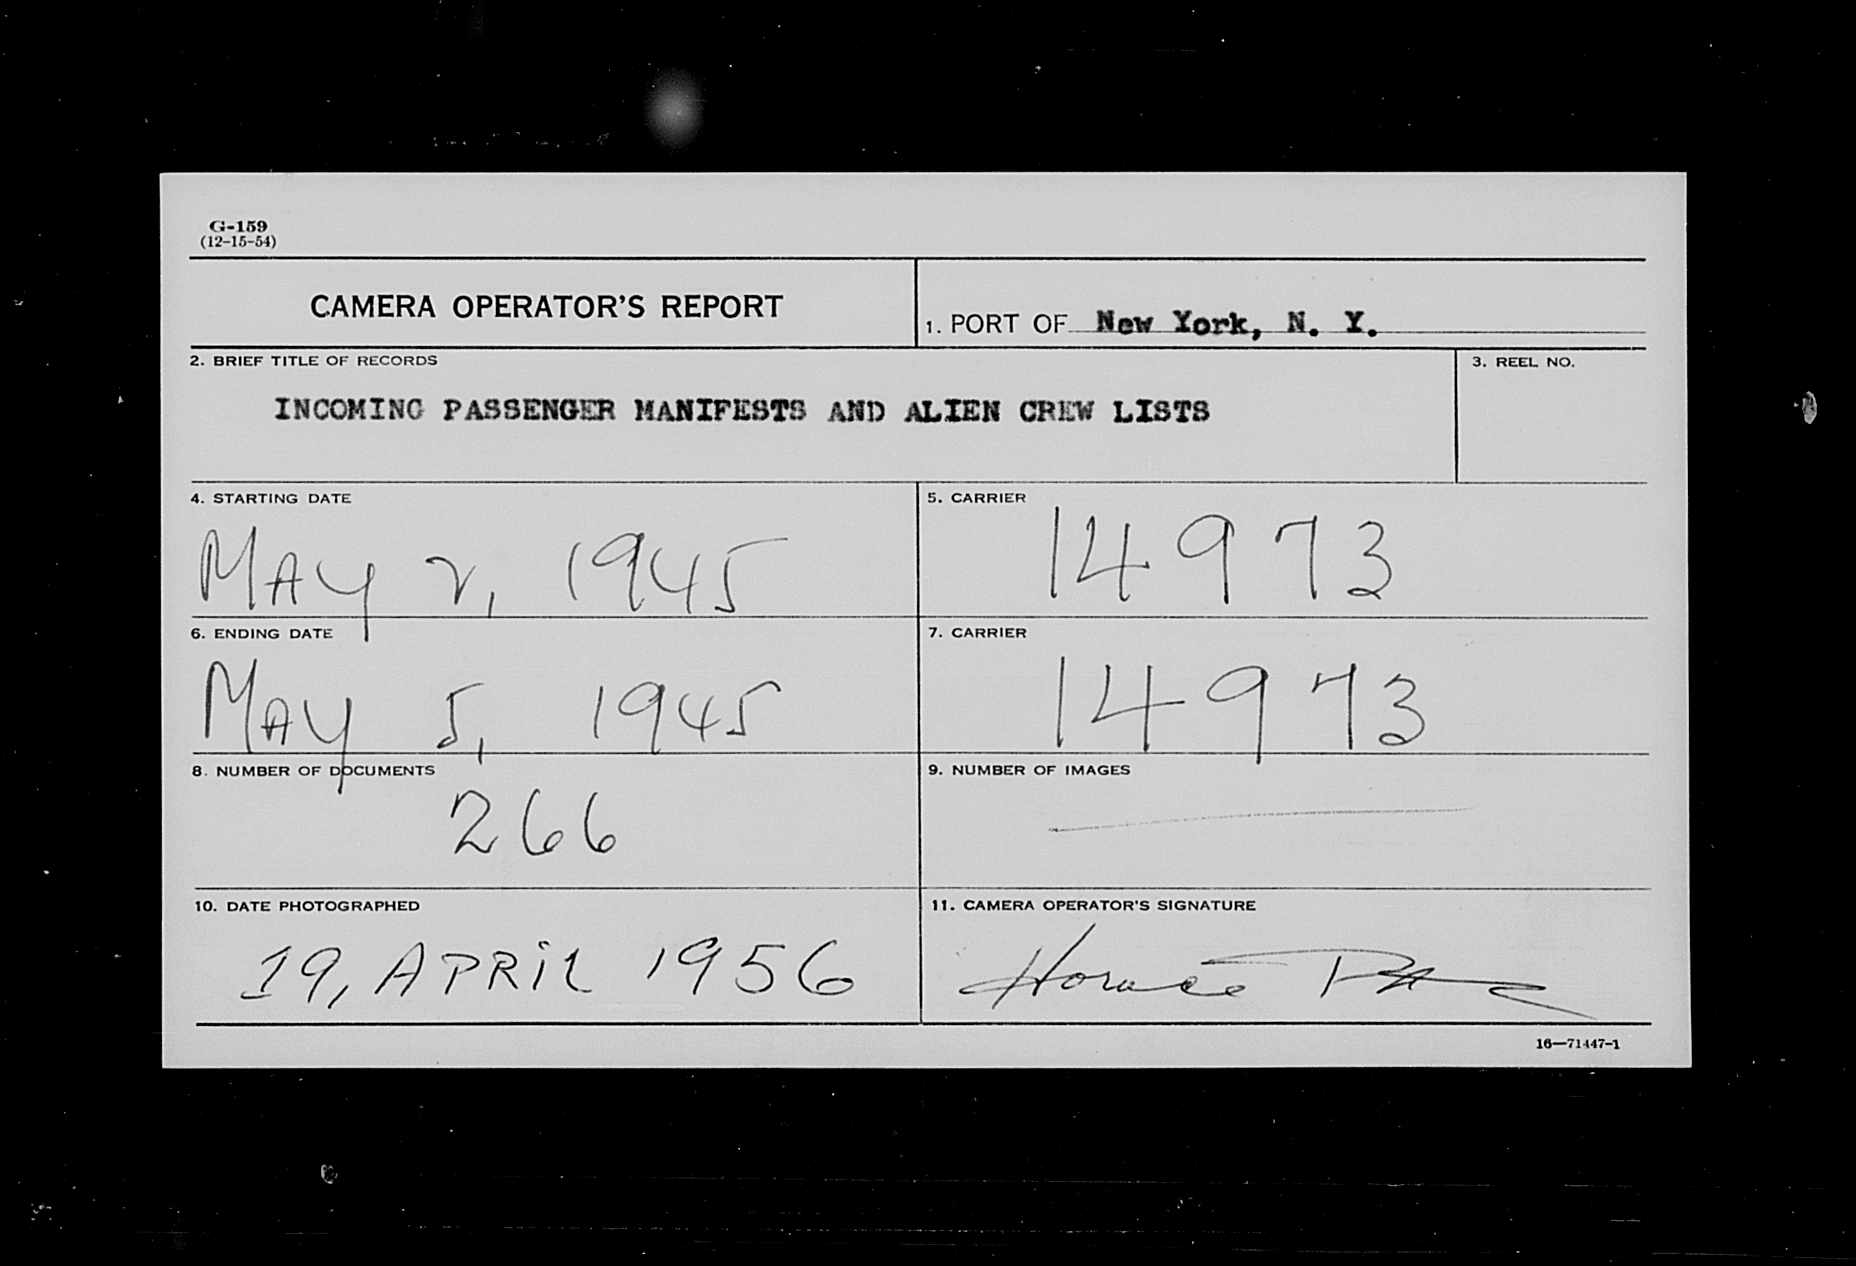 G-159
(12-15-54)
CAMERA OPERATOR'S REPORT
1. PORT OF New York, N. Y.
2. BRIEF TITLE OF RECORDS
3. REEL NO.
INCOMING PASSENGER MANIFESTS AND ALIEN CREW LISTS
4. STARTING DATE
5. CARRIER
MAY 2, 1945
14973
6. ENDING DATE
7. CARRIER
MAY 5, 1945
14973
8. NUMBER OF DOCUMENTS
9. NUMBER OF IMAGES
266
10. DATE PHOTOGRAPHED
11. CAMERA OPERATOR'S SIGNATURE
19, APRIL 1956
Horace
16—71447-1